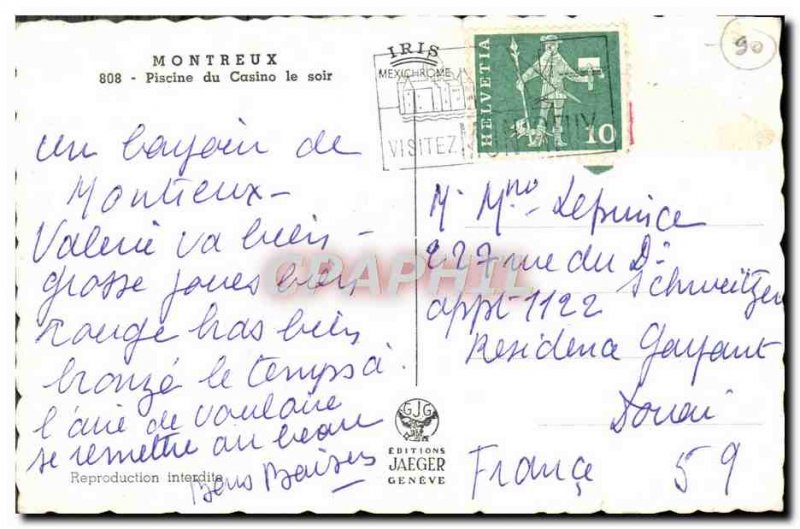 MONTREUX
808 - Piscine du Casino le soir
IRIS
MEXICHROME
VISITEZ MONTREUX
HELVETIA
10
90
un bonjour de
Montreux -
Valerie va bien -
grosse joues bien
rouge bras bien
bronzé le temps à
l'aire de vouloire
se remettre au beau
Bons Baisers
M. Mme Leprince
227 rue du Dr
Schweitzer
appt 1122
Residence Gayant
Douai
France 59
CPAPHIL
GJG
ÉDITIONS
JAEGER
GENÈVE
Reproduction interdite